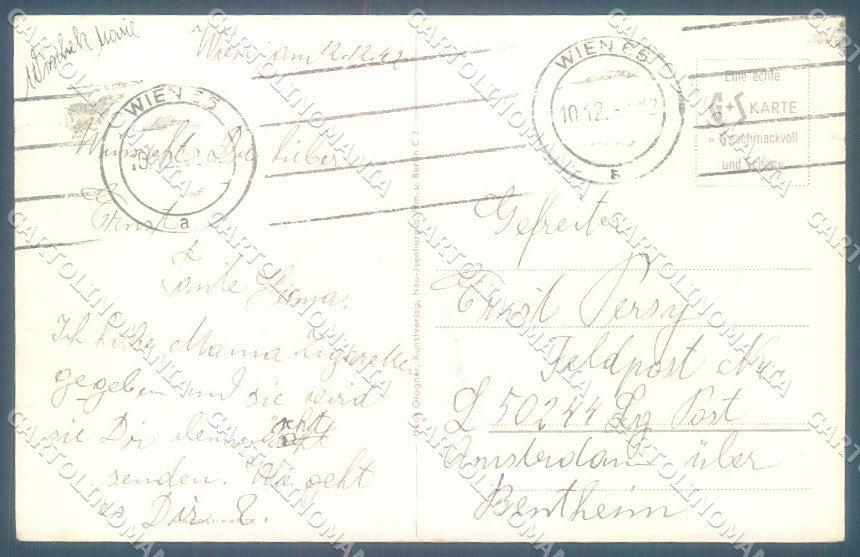 Wien am 12.12.42
Wünscht Dir lieber
Ernst
Tante
Ich habe Mama Zigaretten
gegeben und sie wird
sie Dir
senden. Wie geht
es Dir
WIEN 65
a
WIEN 65
10.12.
Eine echte
G+S KARTE
» Geschmackvoll
und
Gefreiter
Ernst Persy
Feldpost Nr
L 50244 Lg Post
Amsterdam über
Bentheim
Kunstverlag, Neu-Isenburg u. Berlin C 2
CARTOLINOMANIA